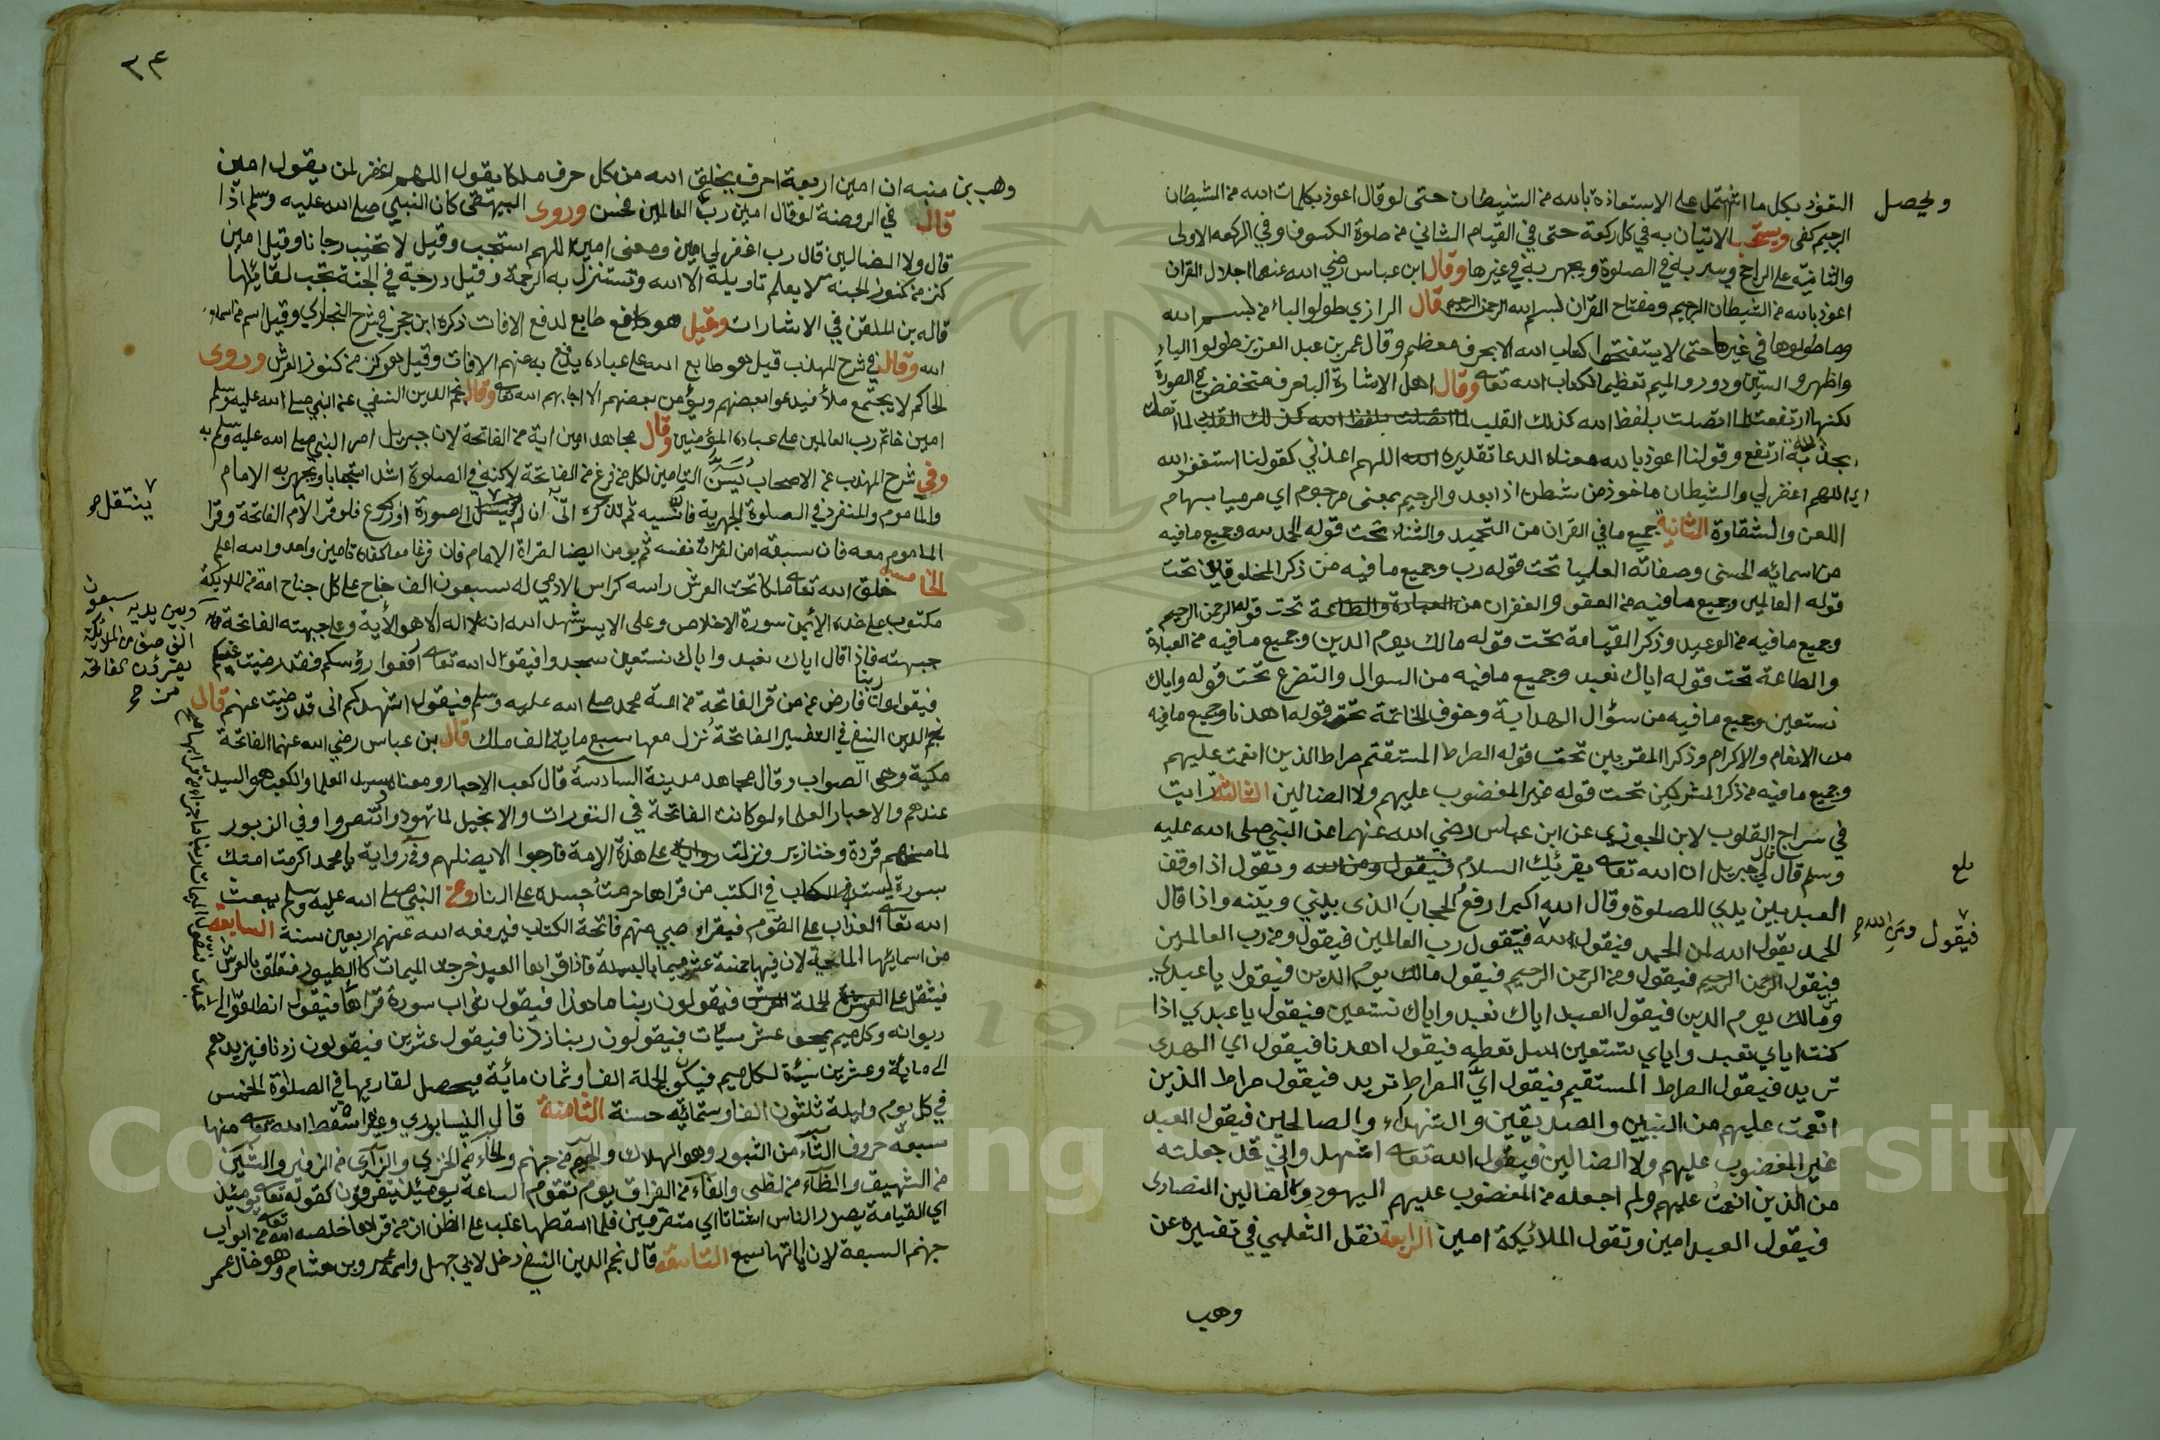 ويحصل
التعوذ بكل ما اشتمل على الاستعاذة بالله من الشيطان حتى لو قال اعوذ بكلمات الله من الشيطان
الرجيم كفى ويستحب الاتيان به في كل ركعة حتى في القيام الثاني من صلوة الكسوف وفي الركعه الاولى
والثانية على الراجح ويسر به في الصلوة ويجهر به في غيرها وقال ابن عباس رضي الله عنهما اجلال القران
اعوذ بالله من الشيطان الرجيم ومفتاح القران بسم الله الرحمن الرحيم قال الرازي طولوا الباء من بسم الله
وما طولوها في غيرها حتى لا يستفتحوا كتاب الله الا بحرف معظم وقال عمر بن عبد العزيز طولوا الباء
واظهروا السين ودوروا الميم تعظيما لكتاب الله تعالى وقال اهل الاشارة الباء حرف منخفض في الصورة
لكنها ارتفعت لما اتصلت بلفظ الله كذلك القلب لما اتصلت بلفظ الله كذلك القلب لما اتصل
ارتفع وقولنا اعوذ بالله معناه الدعا تقديره الله اللهم اعذني كقولنا استغفر الله
اي اللهم اغفر لي والشيطان ماخوذ من شطن اذا بعد والرجيم بمعنى مرجوم اي مرميا بسهام
اللعن والشقاوة الثانية جميع ما في القران من التحميد والثناء تحت قوله الحمد لله وجميع ما فيه
من اسمائه الحسنى وصفاته العليا تحت قوله رب وجميع ما فيه من ذكر المخلوقين تحت
قوله العالمين وجميع ما فيه من العفو والغفران من العبادة والطاعة تحت قوله الرحمن الرحيم
وجميع ما فيه من الوعيد وذكر القيامة تحت قوله مالك يوم الدين وجميع ما فيه من العبادة
والطاعة تحت قوله اياك نعبد وجميع ما فيه من السوال والتضرع تحت قوله واياك
نستعين وجميع ما فيه من سؤال الهداية وخوف الخاتمة تحت قوله اهدنا وجميع ما فيه
من الانعام والاكرام وذكر المقربين تحت قوله الصراط المستقيم صراط الذين انعمت عليهم
وجميع ما فيه من ذكر المشركين تحت قوله غير المغضوب عليهم ولا الضالين الثالثة رايت
في سراج القلوب لابن الجوزي عن ابن عباس رضي الله عنهما عن النبي صلى الله عليه
وسلم قال قال لي جبريل ان الله تعالى يقرئك السلام فيقول ومن الله ويقول اذا وقف
بلغ
العبد بين يدي للصلوة وقال الله اكبر ارفع الحجاب الذى بيني وبينه واذا قال
الحمد يقول الله لمن الحمد فيقول لله فيقول رب العالمين فيقول ومن رب العالمين
فيقول ومن الله صح
فيقول الرحمن الرحيم فيقول ومن الرحمن الرحيم فيقول مالك يوم الدين فيقول يا عبدي
ومن مالك يوم الدين فيقول العبد اياك نعبد واياك نستعين فيقول يا عبدي اذا
كنت اياي تعبد واياي تستعين اسل تعطه فيقول اهدنا فيقول اي الهدى
تريد فيقول الصراط المستقيم فيقول اي الصراط تريد فيقول صراط الذين
انعمت عليهم من النبيين والصديقين والشهداء والصالحين فيقول العبد
غير المغضوب عليهم ولا الضالين فيقول الله تعالى اشهد واني قد جعلته
من الذين انعمت عليهم ولم اجعله من المغضوب عليهم اليهود والضالين النصارى
فيقول العبد امين وتقول الملائيكة امين الرابعة نقل الثعلبي في تفسيره عن
وهب
٣٤
وهب بن منبه ان امين اربعة احرف يخلق الله من كل حرف ملكا يقول اللهم اغفر لمن يقول امين
قال في الروضة لو قال امين رب العالمين فحسن وروى البيهقي كان النبي صلى الله عليه وسلم اذا
قال ولا الضالين قال رب اغفر لي امين ومعنى امين اللهم استجب وقيل لا تخيب رجانا وقيل امين
كنز من كنوز الجنة لا يعلم تاويله الا الله وتستنزل به الرحمة وقيل درجة في الجنة تجب لقائلها
قاله بن الملقن في الاشارات وقيل هو دافع طابع لدفع الافات ذكره ابن حجر في شرح البخاري وقيل اسم من اسماء
الله وقال في شرح المهذب قيل هو طابع الله على عباده يدفع به عنهم الافات وقيل هو كنز من كنوز العرش وروى
الحاكم لا يجتمع ملأ فيدعوا بعضهم ويؤمن بعضهم الا اجابهم الله تعالى وقال نجم الدين النسفي عن النبي صلى الله عليه وسلم
امين خاتم رب العالمين على عباده المؤمنين وقال مجاهد امين اية من الفاتحة لان جبريل امر النبي صلى الله عليه وسلم به
وفي شرح المهذب عن الاصحاب يسن التامين لكل من فرغ من الفاتحة لكنه في الصلوة اشد استحبابا ويجهر به الامام
والماموم والمنفرد في الصلوة الجهرية فان نسيه ثم تذكره اتى به ان لم الى سورة او ركوع فلو قرا الام الفاتحة وقرا
ينتقل صح
الماموم معه فان سبقه امن لقراة نفسه ثم يومن ايضا لقراة الامام فان فرغا معا كفاه تامين واحد والله اعلم
الخامسة خلق الله تعالى ملكا تحت العرش راسه كراس الادمي له سبعون الف جناح على كل جناح امة من الملايكة
مكتوب على خده الأيمن سورة الاخلاص وعلى الايسر شهد الله انه لا اله الا هو الأية وعلى جبهته الفاتحة
وبين يديه سبعون
الف صف من الملايكة
يقرؤن الفاتحة
صح
فاذا قال اياك نعبد واياك نستعين سجدوا فيقول الله تعالى ارفعوا رؤسكم فقد رضيت عنكم
فيقولون ربنا فارض عن من قرا الفاتحة من امة محمد صلى الله عليه وسلم فيقول اشهدكم انى قد رضيت عنهم قال
نجم الدين النسفي في التفسير الفاتحة نزل معها سبع ماية الف ملك قال بن عباس رضي الله عنهما الفاتحة
مكية وهي الصواب وقال مجاهد مدينة السادسة قال كعب الاحبار ومعناه سيد العلما والكعب هو السيد
عندهم والاحبار العلماء لو كانت الفاتحة في التورات والانجيل لما تهودوا وتنصروا وفي الزبور
لما مسخهم قردة وخنازير ونزلت على هذه الامة فارجوا الا يضلهم وفي رواية يا محمد اكرمت امتك
بسورة ليست في الكتب من قراها حرمت جسده على النار وعن النبي صلى الله عليه وسلم يبعث
الله تعالى العذاب على القوم فيقراء صبي منهم فاتحة الكتاب فيرفعه الله عنهم اربعين سنة السابعة
من اسمائها الماحية لان فيها خمسة عشر ميما بالبسملة فاذا قراها العبد خرجت الميمات كالطيور فتعلق بالعرش
فيثقل على العرش لحملة العرش فيقولون ربنا ما هذا فيقول ثواب سورة قراها فيقول انطلقوا الى
ديوانه وكل ميم يمحو عشر سيئات فيقولون ربنا زدنا فيقول عشرين فيقولون زدنا فيزيدهم
الى ماية وعشرين سيئة لكل ميم فيكون الجملة الفا وثمان مائة فيحصل لقاريها في الصلوة الخمس
في كل يوم وليلة ثلثون الفا وستمائه حسنة الثامنة قال النيسابوري وغيره اسقط الله تعالى منها
سبعة حروف الثاء من الثبور وهو الهلاك والجيم من جهنم والخاء من الخزي والزاى من الزفير والشين
من الشهيق والظاء من لظى والفاء من الفراق يوم تقوم الساعة يومئذ يتفرقون كقوله تعالى يومئذ
اي القيامة يصدر الناس اشتاتا اي متفرقين فلما اسقطها غلب على الظن ان من قراها خلصه الله تعالى من ابواب
جهنم السبعة لان اياتها سبع التاسعة قال نجم الدين النسفي دخل لابي جهل واسمه عمرو بن هشام وهو خال عمر